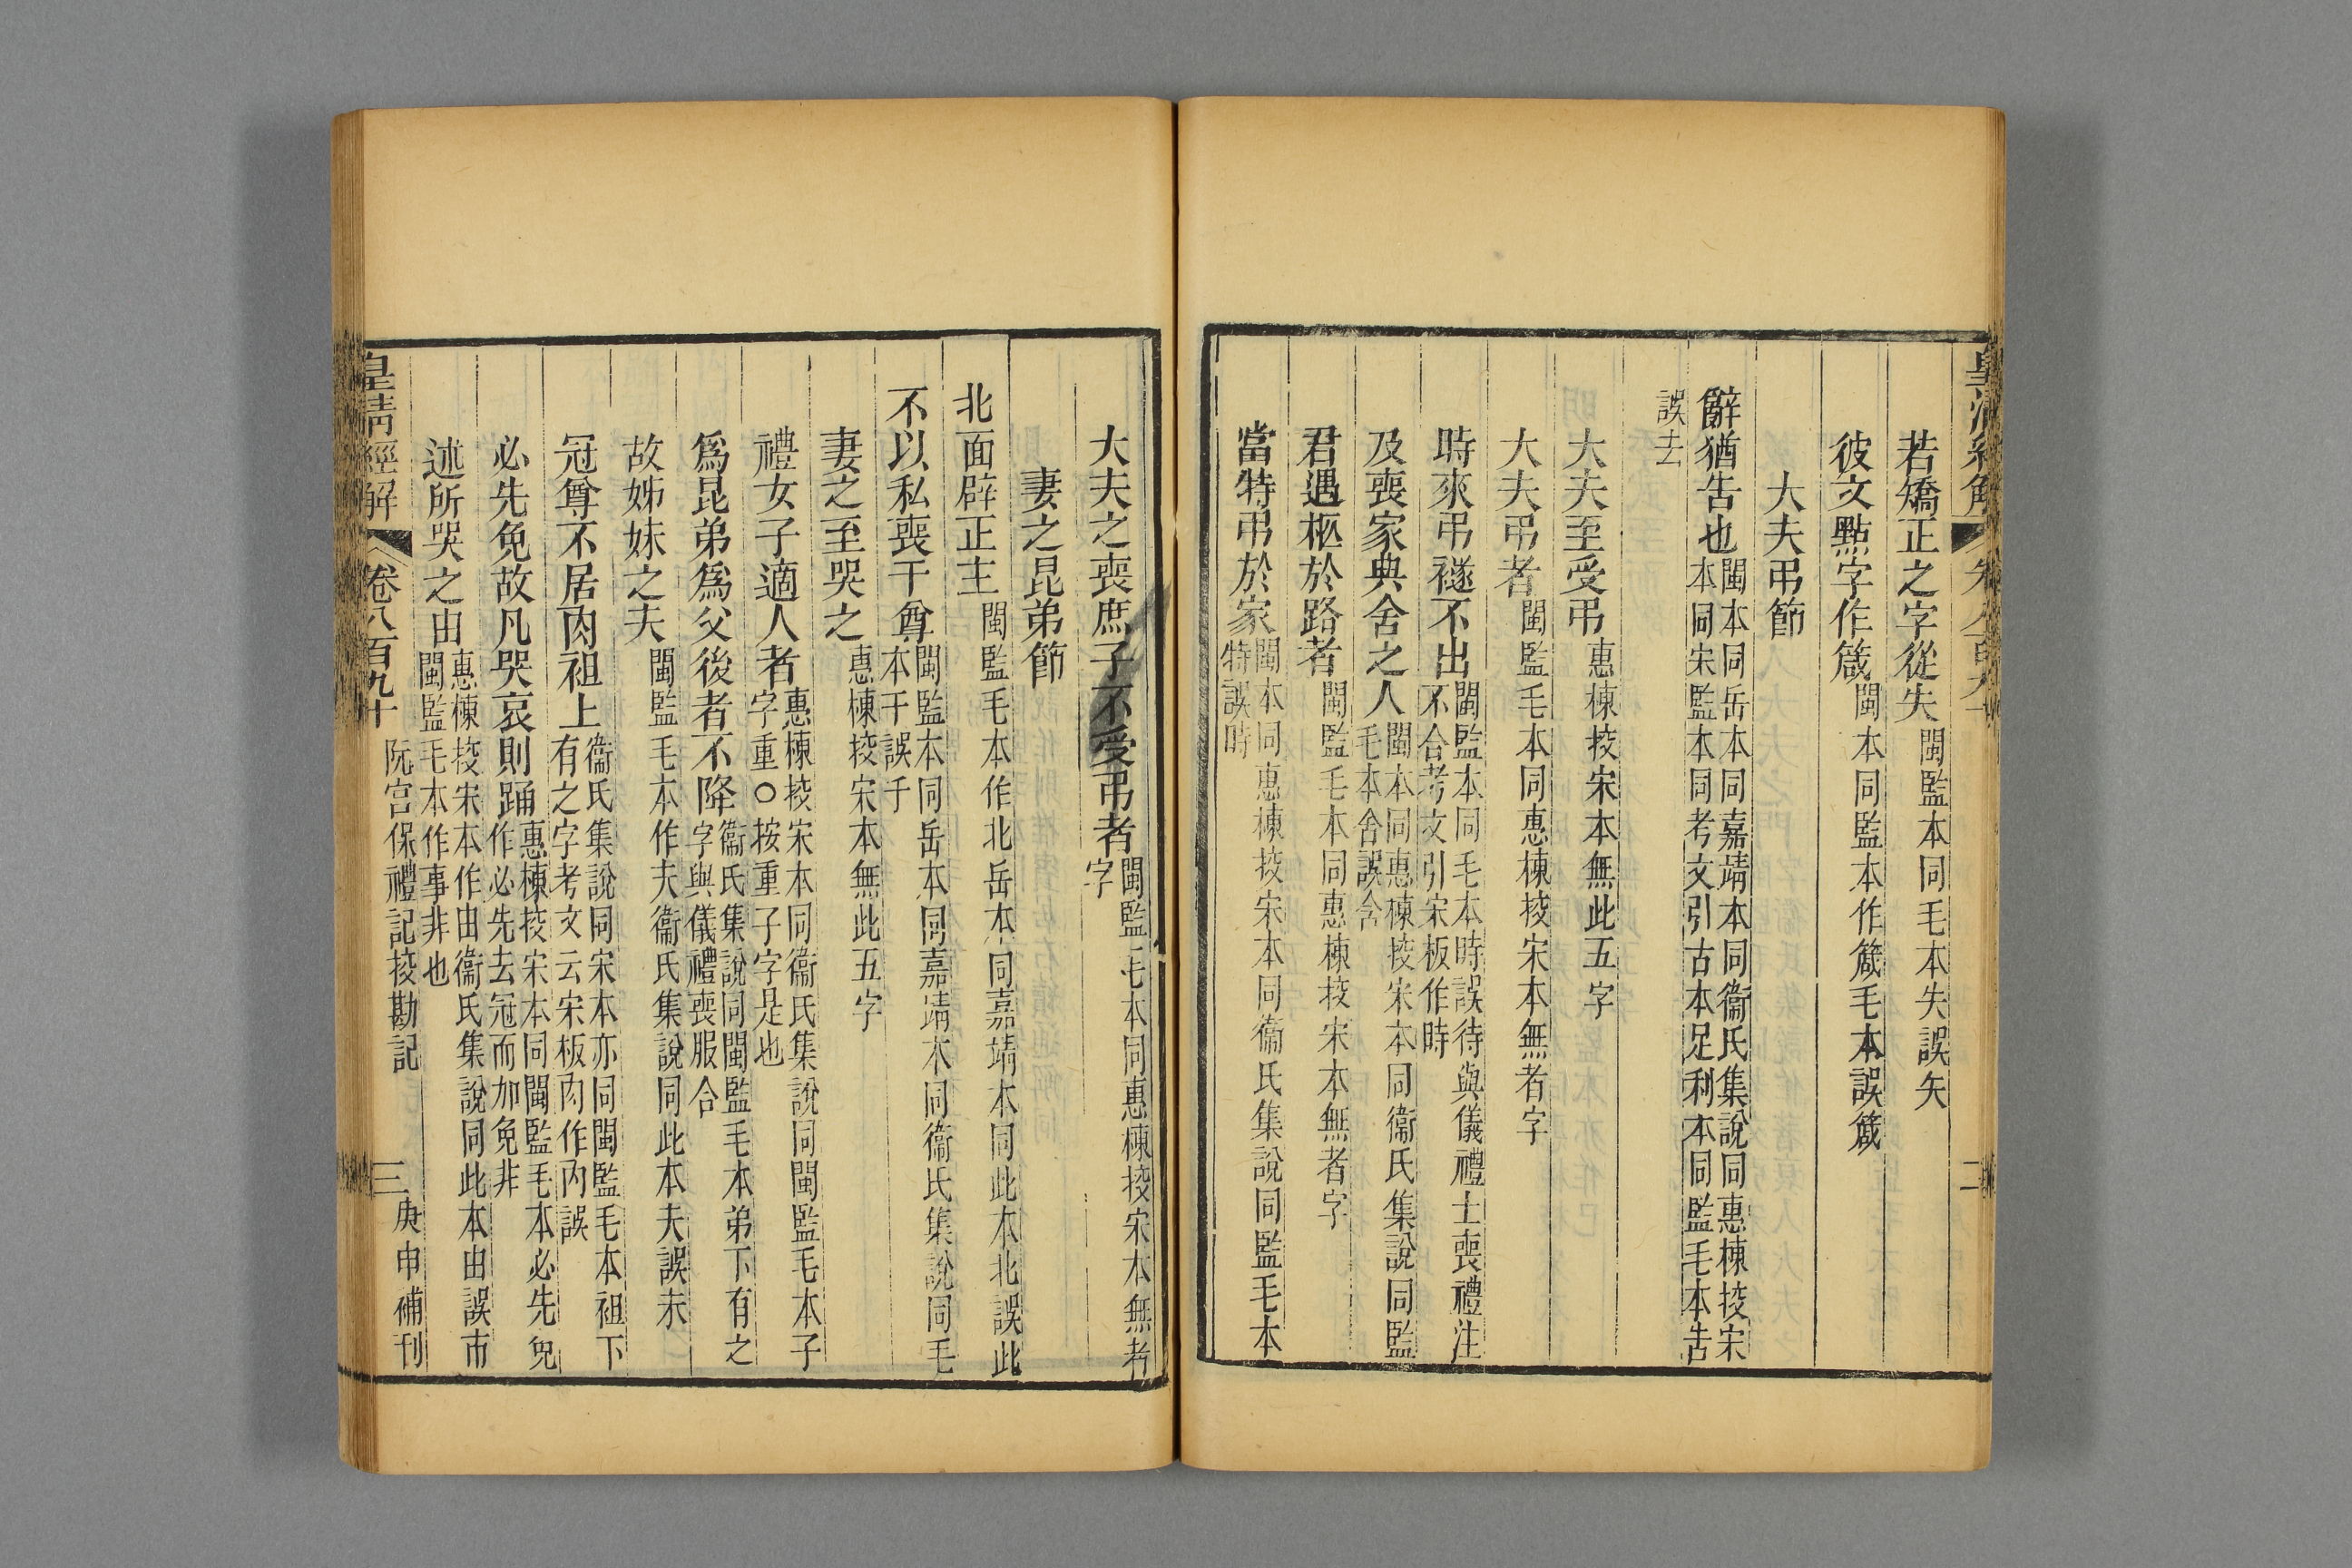 若矯正之字從失閩監本同毛本失誤矢
彼文點字作箴閩本同監本作箴毛本誤箴
大夫弔節
辭猶告也閩本同岳本同嘉靖本同衞氏集說同惠棟挍宋
本同宋監本同考文引古本足利本同監毛本告
誤去
大夫至受弔惠棟挍宋本無此五字
大夫弔者閩監毛本同惠棟挍宋本無者字
時來弔襚不出閩監本同毛本時誤待與儀禮士喪禮注
不合考文引宋板作時
及喪家典舍之人閩本同惠棟挍宋本同衞氏集說同監
毛本舍誤含
君遇柩於路者閩監毛本同惠棟挍宋本無者字
當特弔於家閩本同惠棟挍宋本同衞氏集說同監毛本
特誤時
二
大夫之喪庶子不受弔者閩監毛本同惠棟挍宋本無者
字
妻之昆弟節
北面辟正主閩監毛本作北岳本同嘉靖本同此本北誤此
不以私喪干尊閩監本同岳本同嘉靖本同衞氏集說同毛
本干誤于
妻之至哭之惠棟挍宋本無此五字
禮女子適人者惠棟挍宋本同衞氏集說同閩監毛本子
字重○按重子字是也
爲昆弟爲父後者不降衞氏集說同閩監毛本弟下有之
字與儀禮喪服合
故姊妹之夫閩監毛本作夫衞氏集說同此本夫誤未
冠尊不居肉袒上衞氏集說同宋本亦同閩監毛本袒下
有之字考文云宋板肉作內誤
必先免故凡哭哀則踊惠棟挍宋本同閩監毛本必先免
作必先去冠而加免非
述所哭之由惠棟挍宋本作由衞氏集說同此本由誤市
閩監毛本作事非也
阮宮保禮記挍勘記
皇清經解 卷八百九十 三 庚申補刊